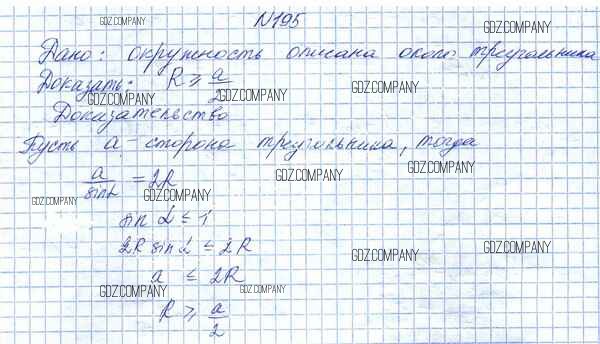 N195
Дано: окружность описана около треугольника
Доказать: R ≥ a/2
Доказательство
Пусть a - сторона треугольника, тогда
a/sinα = 2R
sin α ≤ 1
2R sin α ≤ 2R
a ≤ 2R
R ≥ a/2
GDZ.COMPANY
GDZ.COMPANY
GDZ.COMPANY
GDZ.COMPANY
GDZ.COMPANY
GDZ.COMPANY
GDZ.COMPANY
GDZ.COMPANY
GDZ.COMPANY
GDZ.COMPANY
GDZ.COMPANY
GDZ.COMPANY
GDZ.COMPANY
GDZ.COMPANY